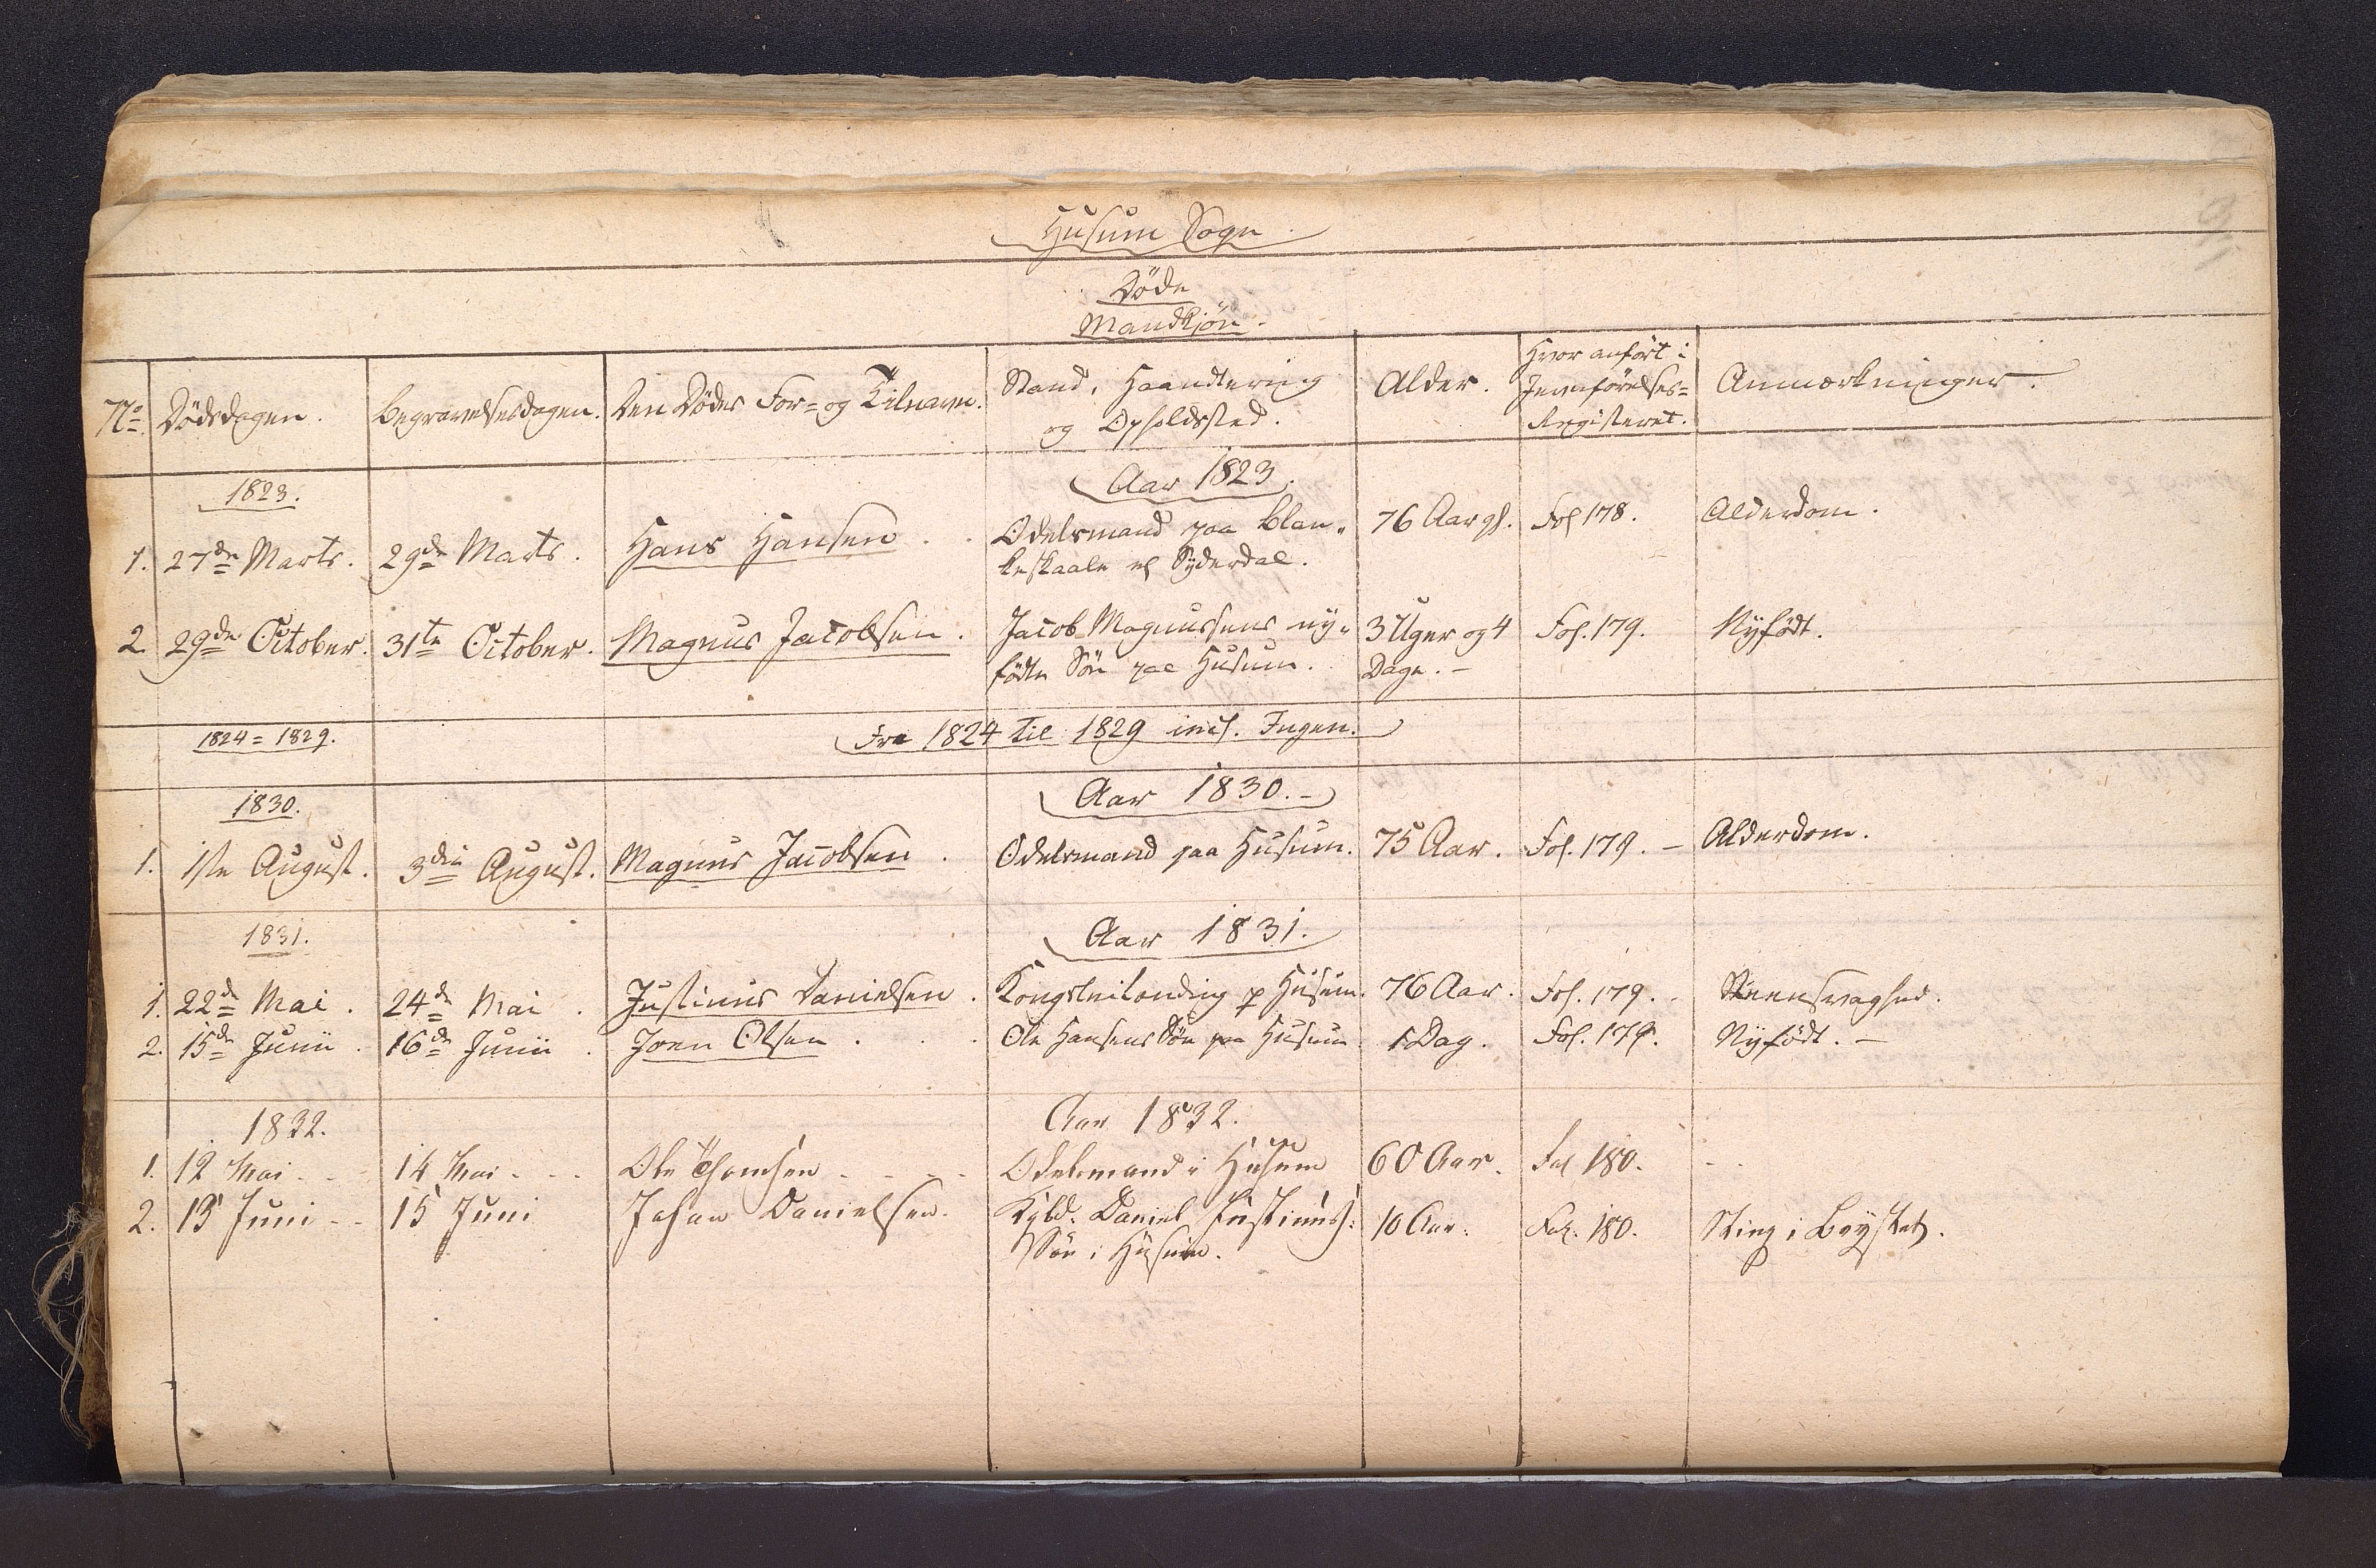 Husum Sogn.
Döde
Mandkjön.
No. Dödsdagen. Begravelsesdagen. Den Dödes For- og Tilnavn. Stand, Haandtering og Opholdssted. Alder. Hvor anfört i Jevnförelses-Registeret. Anmærkninger.
1823. Aar 1823.
1. 27de Marts. 29de Marts. Hans Hansen. Odelsmand paa Blan- 76 Aar gl. Fol 178. Alderdom.
keskaale og Syderdal.
2. 29de October. 31te October. Magnus Jacobsen. Jacob Magnussens ny- 3 Uger og 4 Fol. 179. Nyfödt.
födte Sön paa Husum. Dage. -
1824 = 1829. Fra 1824 til 1829 incl. Ingen.
1830. Aar 1830. -
1. 1ste August. 3die August. Magnus Jacobsen. Odelsmand paa Husum. 75 Aar. Fol. 179. - Alderdom.
1831. Aar 1831.
1. 22de Mai. 24de Mai. Justinus Danielsen. Kongsleilending p Husum. 76 Aar. Fol. 179. Steensvaghed.
2. 15de Junii. 16de Junii. Joen Olsen. Ole Hansens Sön paa Husum 1 Dag. Fol. 179. Nyfödt. -
1832. Aar 1832.
1. 12 Mai - - 14 Mai - - - Ole Thomsen - - - - Odelsmand i Husum 60 Aar. Fol 180. - -
2. 13 Juni - - 15 Juni Johan Danielsen. Daniel Justinus. 10 Aar. Fol. 180. Sting i Brystet.
Sön i Husum.